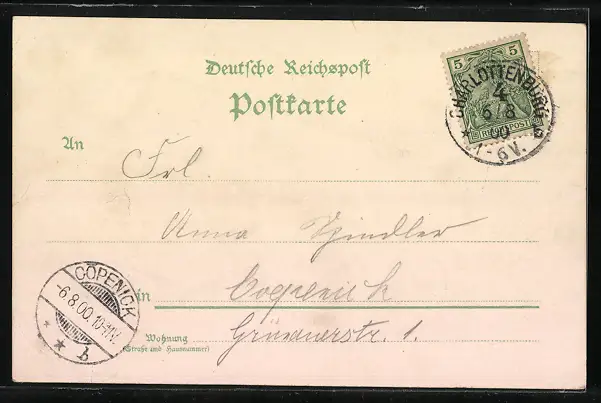 Deutsche Reichspost
Postkarte
5 5
REICHSPOST
CHARLOTTENBURG
4
6/8
00
1-6V.
* b
An Frl.
Anna Spindler
in Coepenick
Wohnung Grünauerstr. 1.
(Straße und Hausnummer)
CÖPENICK
-6.8.00.10-11V.
* * b